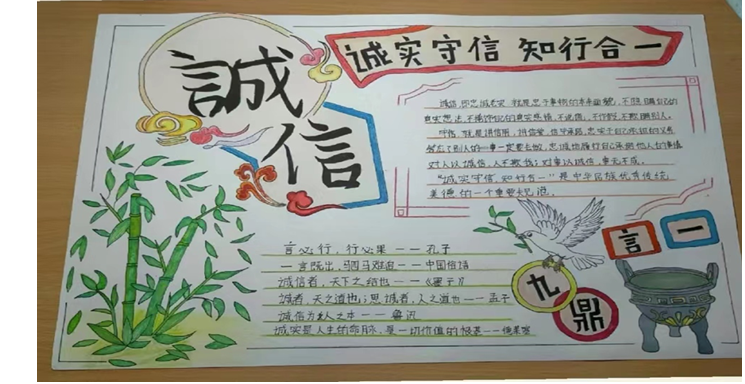 誠信
诚实守信 知行合一
诚信,即忠诚老实,就是忠于事物的本来面貌,不隐瞒自己的
真实想法,不掩饰自己的真实感情,不说谎,不作假,不欺瞒别人。
守信,就是讲信用,讲信誉,信守承诺,忠实于自己承担的义务
答应了别人的事一定要去做,忠诚地履行自己承担
对人以诚信,人不欺我;对事以诚信,事无不成。
“诚实守信,知行合一”是中华民族优秀传统
美德的一个重要
言必行,行必果——孔子
一言既出,驷马难追——中国俗语
诚信者,天下之结也——《墨子》
诚者,天之道也;思诚者,人之道也——孟子
诚信为人之本——鲁迅
诚实是人生的命脉,是一切价值的根基——德莱塞
一言
九鼎